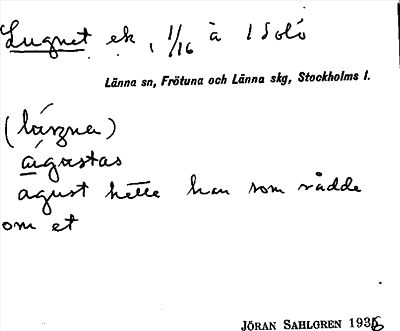 Lugnet ek, 1/16 à 1 Solö
Länna sn, Frötuna och Länna skg, Stockholms l.
(lázna)
ágástas
agust hette han som rådde
om et
JÖRAN SAHLGREN 1936